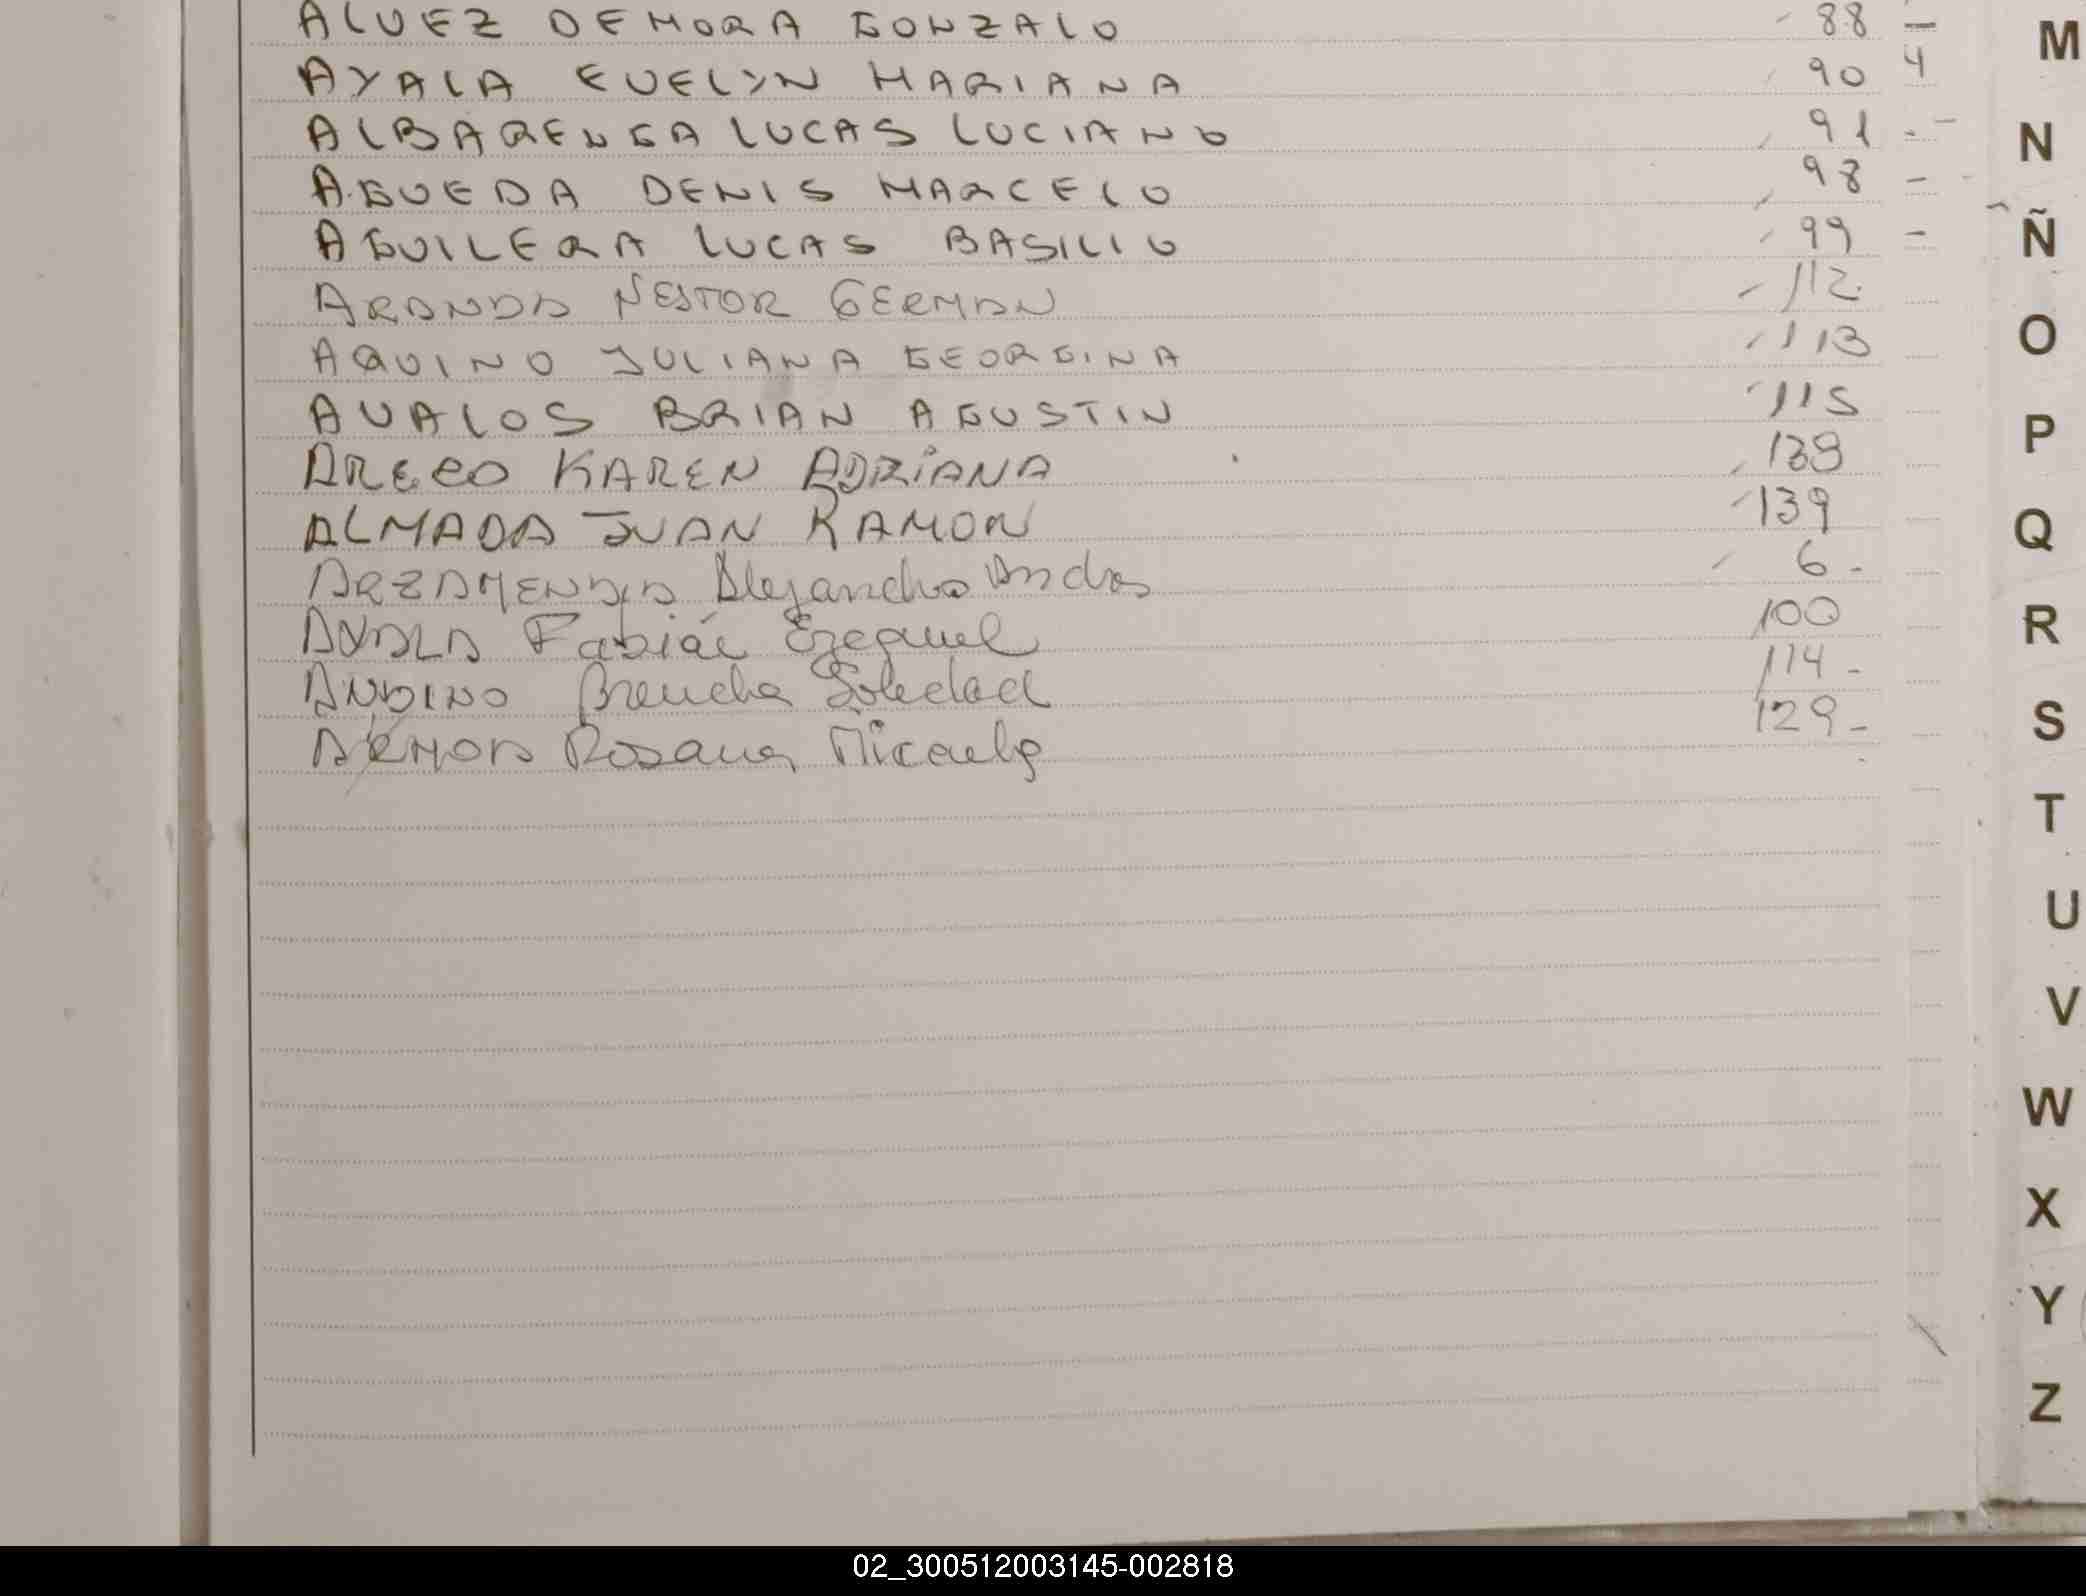 ALVEZ DEMORA GONZALO 88 —
AYALA EVELYN MARIANA 90 4
ALBARENGA LUCAS LUCIANO 91 -
AGUEDA DENIS MARCELO 98 -
AGUILERA LUCAS BASILIO 99 -
ARANDA NESTOR GERMAN 112
AQUINO JULIANA GEORGINA 113
AVALOS BRIAN AGUSTIN 115
ARECO KAREN ADRIANA 139
ALMADA JUAN RAMON 139
ARZAMENDIA Alejandro Andres 6 -
AYALA Fabián Ezequiel 100
ANDINO Brenda Soledad 114 -
Rosana Micaela 129 -
M
N
Ñ
O
P
Q
R
S
T
U
V
W
X
Y
Z
02_300512003145-002818